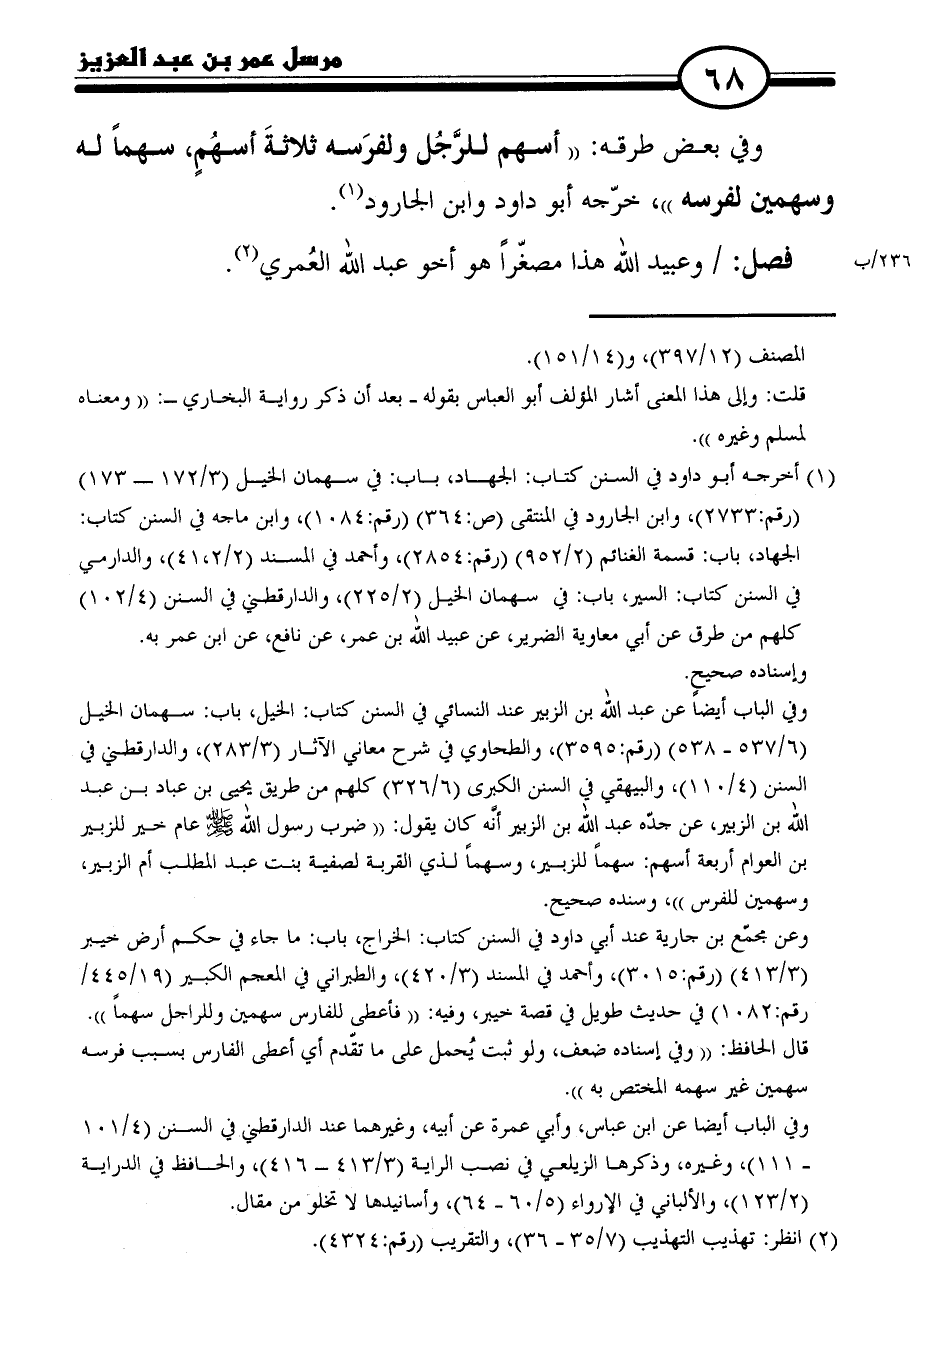 مرسل عمر بن عبد العزيز
٦٨
وفي بعض طرقه: (( أسهم للرَّجُل ولفرَسه ثلاثةَ أسهُمٍ، سهماً له
وسهمين لفرسه ))، خرّجه أبو داود وابن الجارود(١).
٢٣٦/ب
فصل: / وعبيد الله هذا مصغّراً هو أخو عبد الله العُمري(٢).
المصنف (٣٩٧/١٢)، و(١٥١/١٤).
قلت: وإلى هذا المعنى أشار المؤلف أبو العباس بقوله - بعد أن ذكر رواية البخاري -: (( ومعناه
لمسلم وغيره )).
(١) أخرجه أبو داود في السنن كتاب: الجهاد، باب: في سهمان الخيل (١٧٢/٣ - ١٧٣)
(رقم:٢٧٣٣)، وابن الجارود في المنتقى (ص:٣٦٤) (رقم:١٠٨٤)، وابن ماجه في السنن كتاب:
الجهاد، باب: قسمة الغنائم (٩٥٢/٢) (رقم:٢٨٥٤)، وأحمد في المسند (٤١،٢/٢)، والدارمي
في السنن كتاب: السير، باب: في سهمان الخيل (٢٢٥/٢)، والدارقطني في السنن (١٠٢/٤)
كلهم من طرق عن أبي معاوية الضرير، عن عبيد الله بن عمر، عن نافع، عن ابن عمر به.
وإسناده صحيح.
وفي الباب أيضاً عن عبد الله بن الزبير عند النسائي في السنن كتاب: الخيل، باب: سهمان الخيل
(٥٣٧/٦ - ٥٣٨) (رقم:٣٥٩٥)، والطحاوي في شرح معاني الآثار (٢٨٣/٣)، والدارقطني في
السنن (١١٠/٤)، والبيهقي في السنن الكبرى (٣٢٦/٦) كلهم من طريق يحيى بن عباد بن عبد
الله بن الزبير، عن جدّه عبد الله بن الزبير أنَّه كان يقول: (( ضرب رسول الله ﷺ عام خير للزبير
بن العوام أربعة أسهم: سهماً للزبير، وسهماً لذي القربة لصفية بنت عبد المطلب أم الزبير،
وسهمين للفرس ))، وسنده صحيح.
وعن مجمّع بن جارية عند أبي داود في السنن كتاب: الخراج، باب: ما جاء في حكم أرض خيبر
(٤١٣/٣) (رقم:٣٠١٥)، وأحمد في المسند (٤٢٠/٣)، والطبراني في المعجم الكبير (٤٤٥/١٩/
رقم:١٠٨٢) في حديث طويل في قصة خيبر، وفيه: (( فأعطى للفارس سهمين وللراجل سهماً )).
قال الحافظ: (( وفي إسناده ضعف، ولو ثبت يُحمل على ما تقدّم أي أعطى الفارس بسبب فرسه
سهمين غير سهمه المختص به )).
وفي الباب أيضا عن ابن عباس، وأبي عمرة عن أبيه، وغيرهما عند الدارقطني في السنن (١٠١/٤
- ١١١)، وغيره، وذكرها الزيلعي في نصب الراية (٤١٣/٣ - ٤١٦)، والحافظ في الدراية
(١٢٣/٢)، والألباني في الإرواء (٦٠/٥ - ٦٤)، وأسانيدها لا تخلو من مقال.
(٢) انظر: تهذيب التهذيب (٣٥/٧ - ٣٦)، والتقريب (رقم:٤٣٢٤).